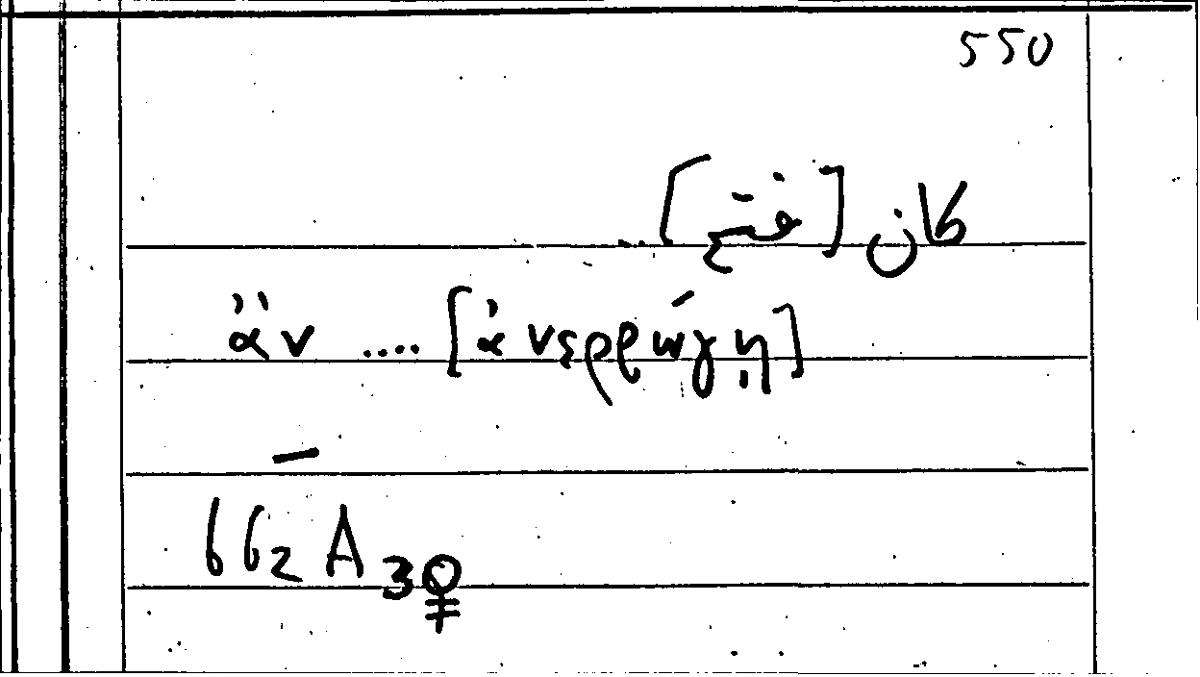 550
كان [فتح] ...
ἄν .... [ἀνερρώγῃ]
662 A 3